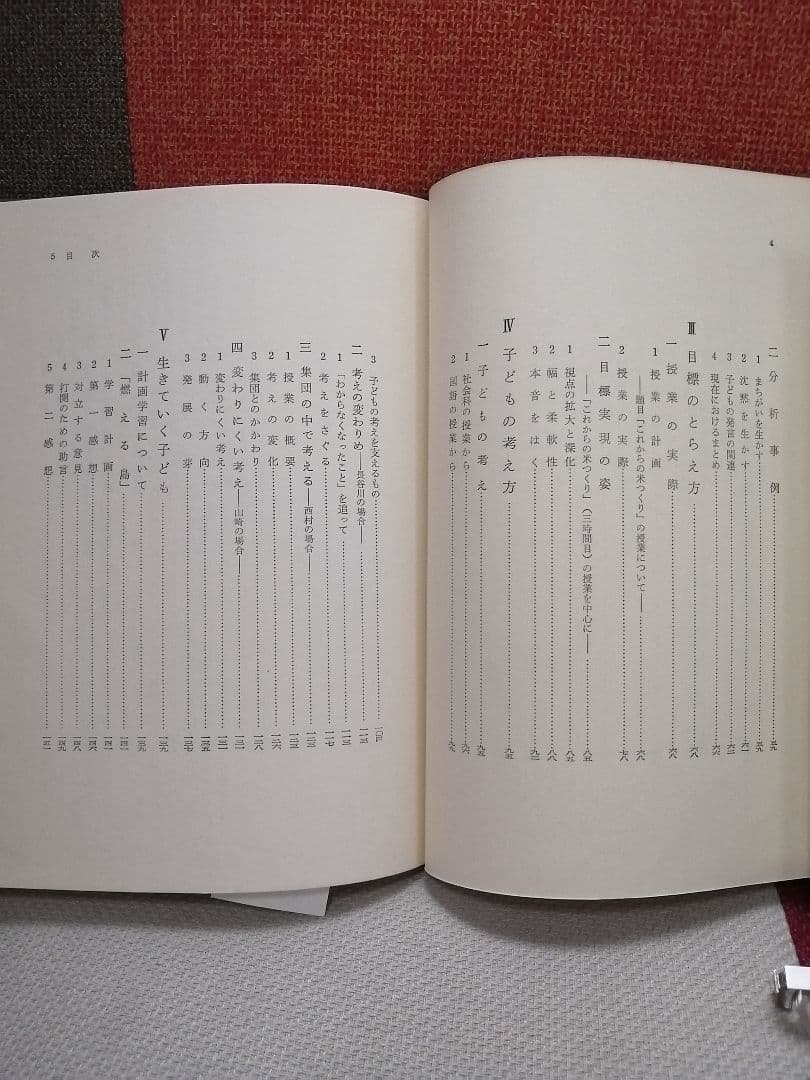 4
二 分析事例
1 まちがいを生かす……五九
2 沈黙を生かす……六一
3 子どもの発言の関連……六二
4 現在におけるまとめ……六六
Ⅲ 目標のとらえ方……六八
一 授業の実際……六八
1 授業の計画
――題目「これからの米つくり」の授業について――……六八
2 授業の実際……七六
――「これからの米つくり」(三時間目)の授業を中心に――
二 目標実現の姿……八五
1 視点の拡大と深化……八五
2 幅と柔軟性……八八
3 本音をはく……九二
Ⅳ 子どもの考え方……九五
一 子どもの考え……九五
1 社会科の授業から……九六
2 国語の授業から……九九
5 目次
3 子どもの考えを支えるもの……一〇四
二 考えの変わりめ――長谷川の場合――……一一三
1 「わからなくなったこと」を追って……一一三
2 考えをさぐる……一一七
三 集団の中で考える――西村の場合――……一二三
1 授業の概要……一二三
2 考えの変化……一二六
3 集団とのかかわり……一二八
四 変わりにくい考え――山崎の場合――……一三一
1 変わりにくい考え……一三一
2 動く方向……一三五
3 発展の芽……一三七
Ⅴ 生きていく子ども……一三九
一 計画学習について……一三九
二 「燃える島」……一四一
1 学習計画……一四一
2 第一感想……一四六
3 対立する意見……一四七
4 打開のための助言……一四九
5 第二感想……一五一